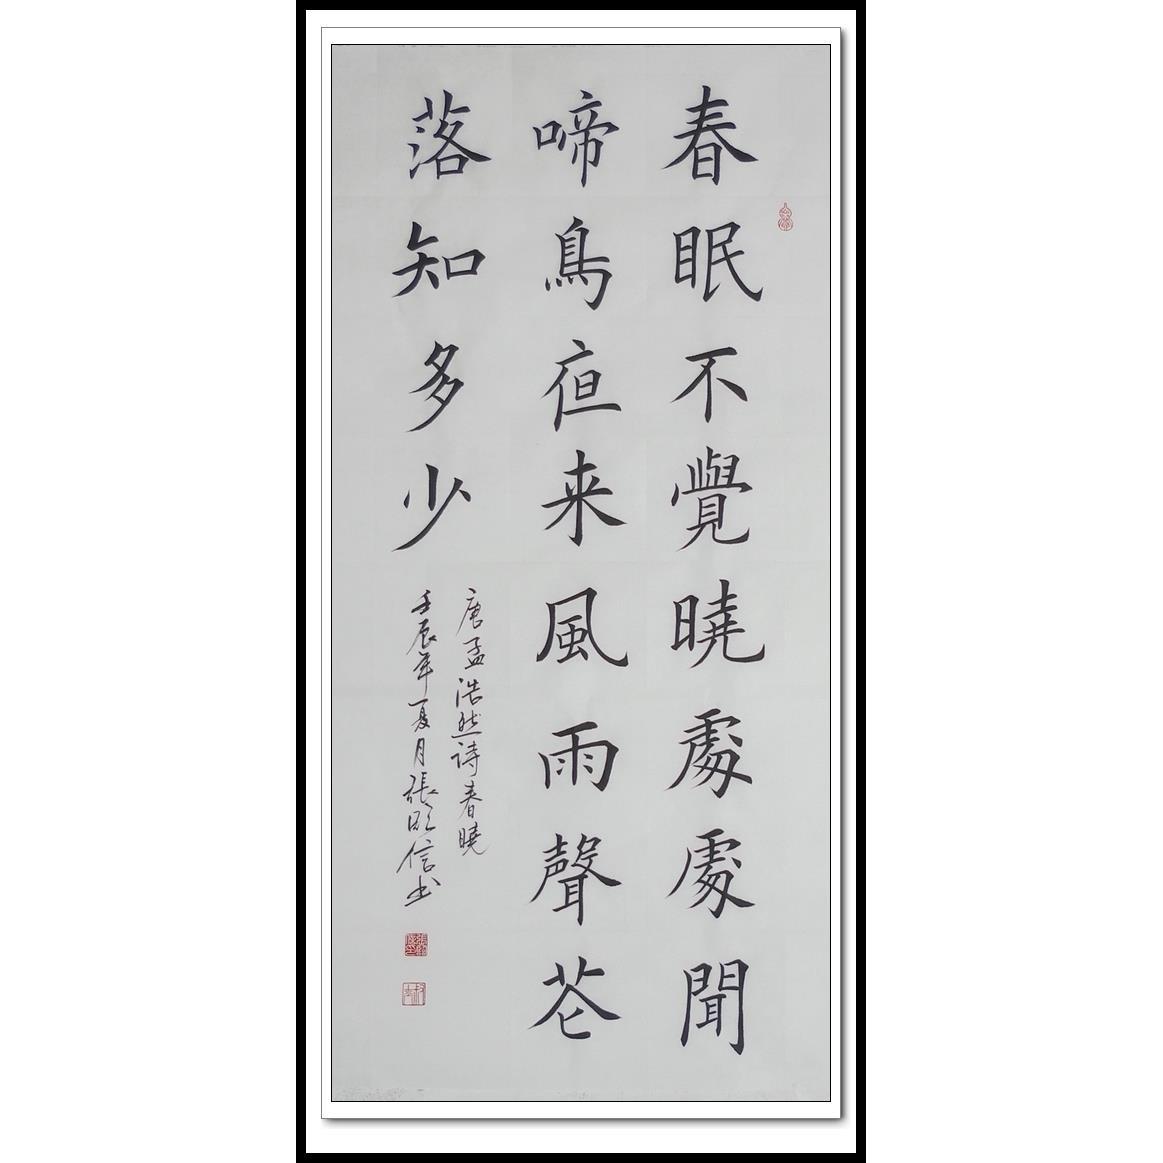 春眠不覺曉處處聞
啼鳥夜来風雨聲花
落知多少
唐孟浩然诗春曉
壬辰年夏月張明信书